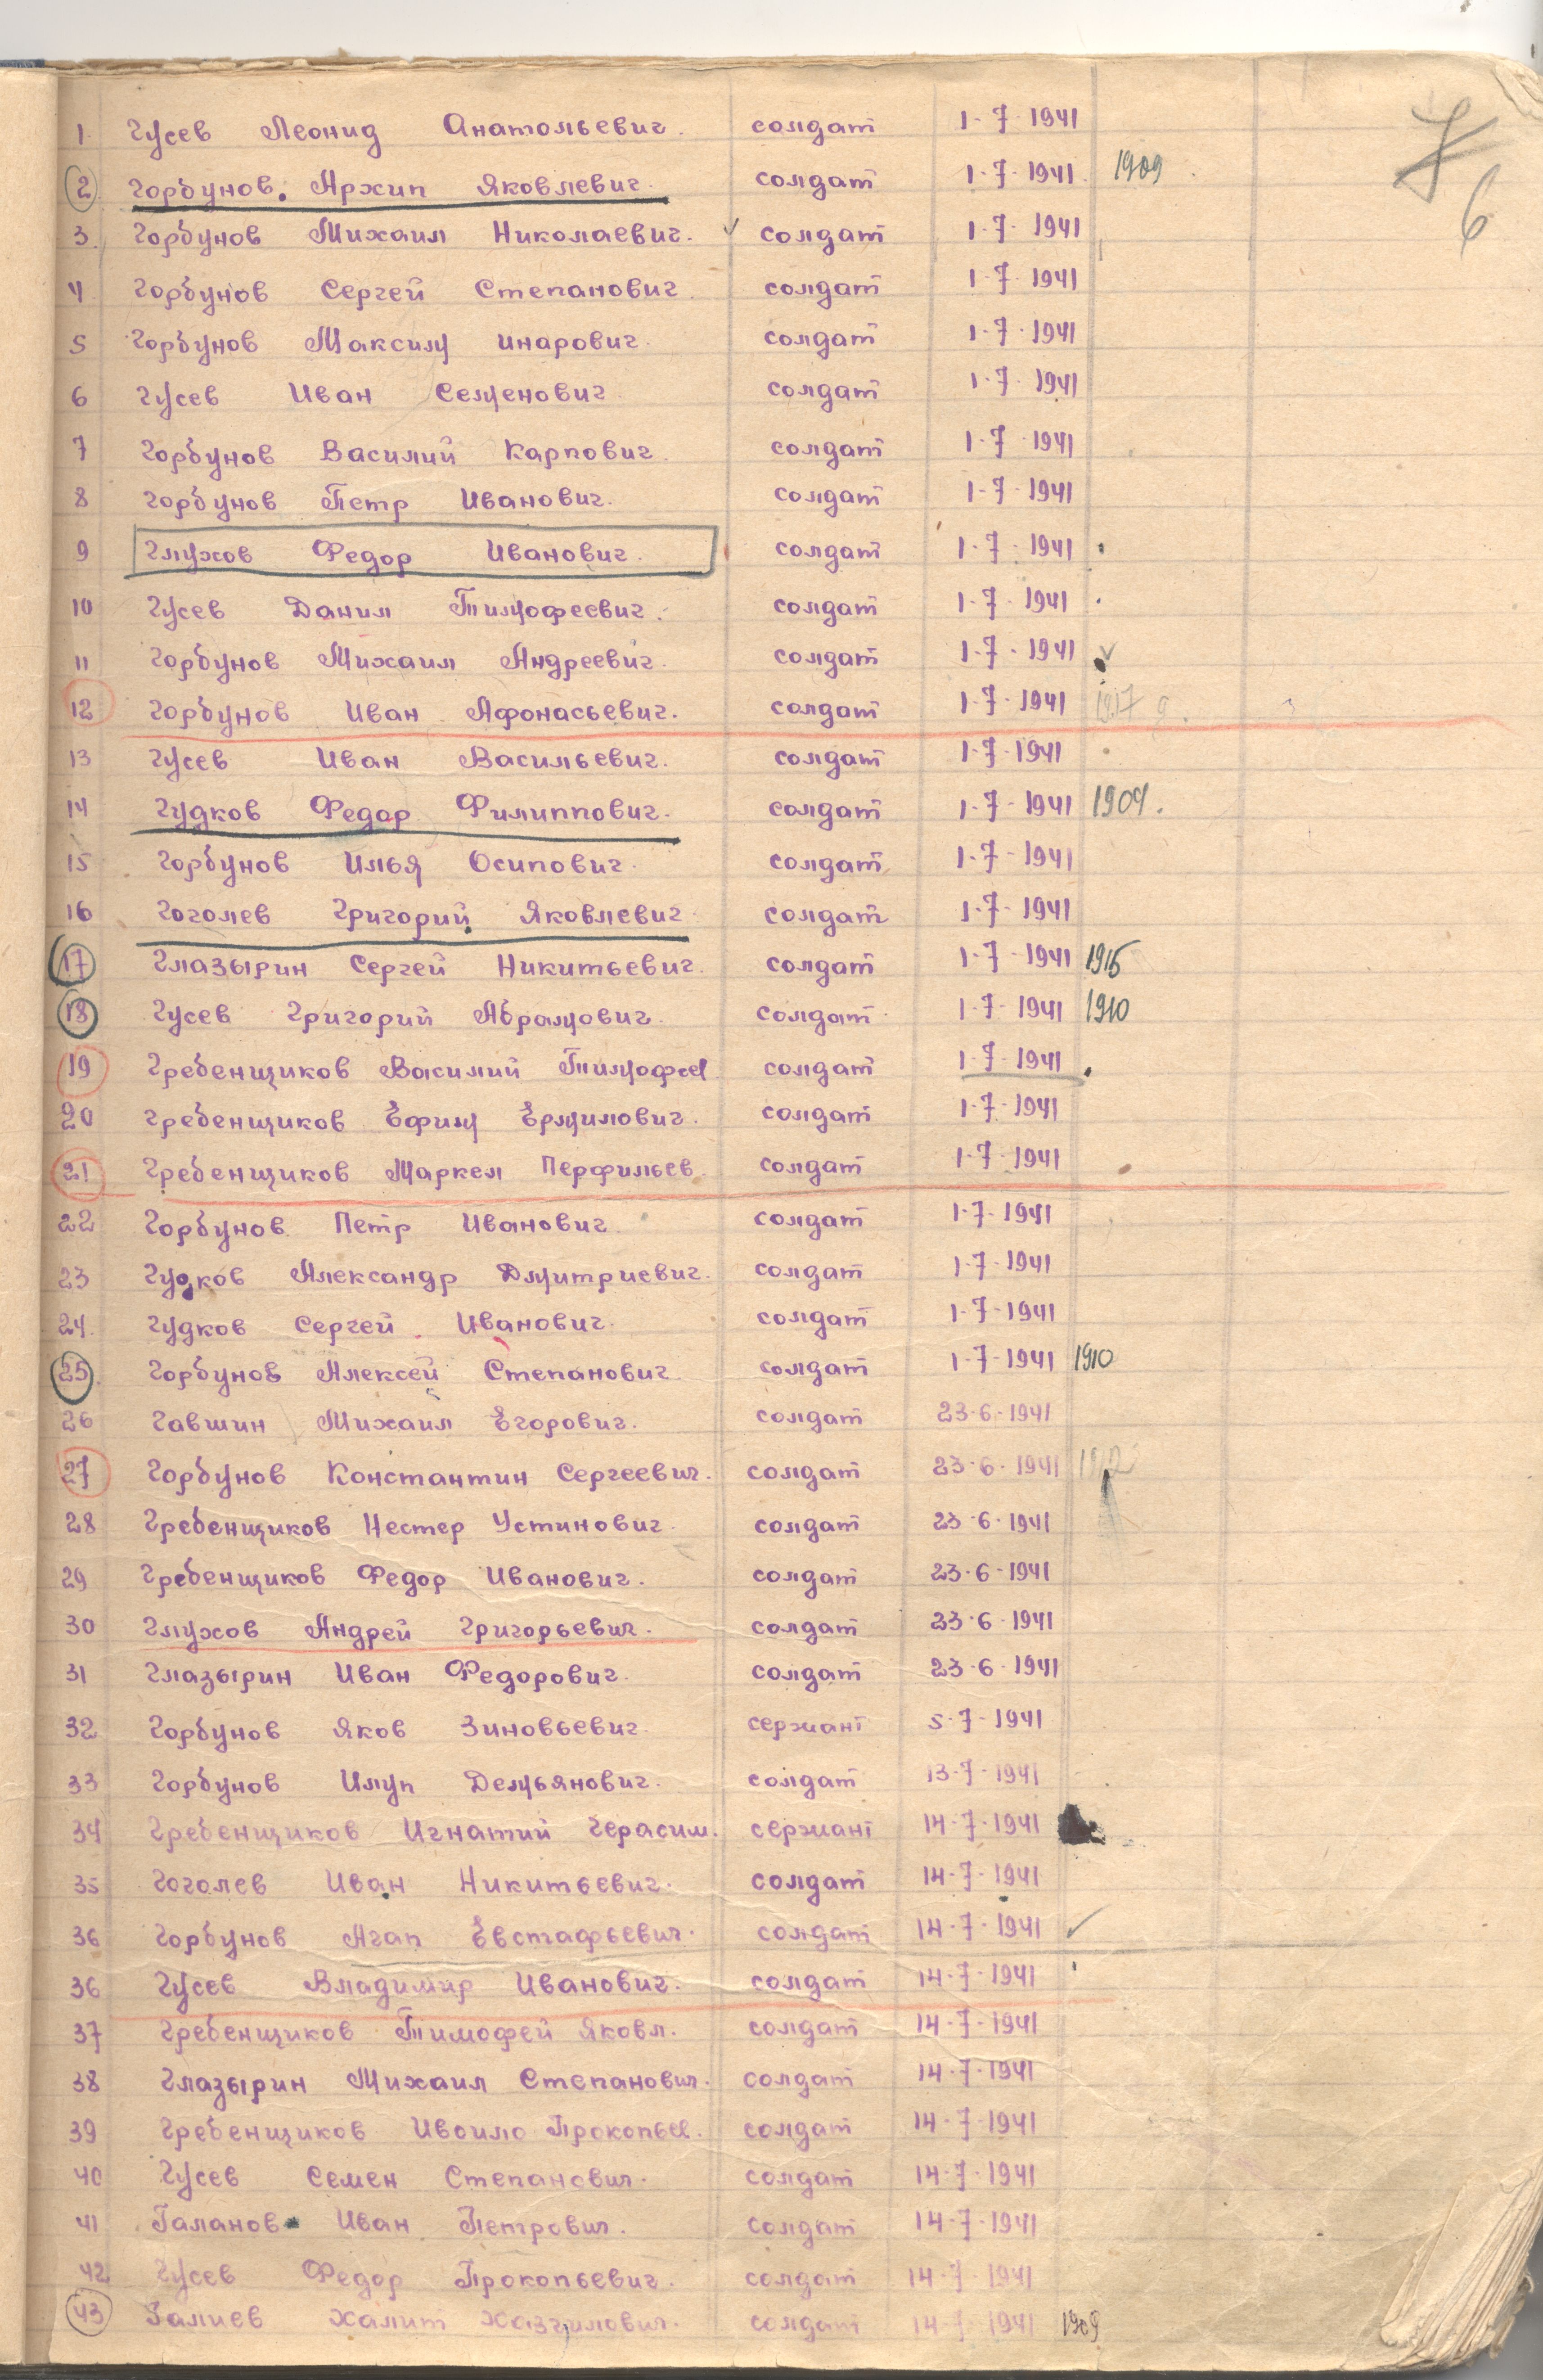 7 6
1 Гусев Леонид Анатольевич. солдат 1-7-1941
2 Горбунов. Архип Яковлевич. солдат 1-7-1941. 1909.
3. Горбунов Михаил Николаевич. солдат 1-7-1941
4 Горбунов Сергей Степанович солдат 1-7-1941
5 Горбунов Максим Инарович. солдат 1-7-1941
6 Гусев Иван Семенович солдат 1-7-1941
7 Горбунов Василий Карпович. солдат 1-7-1941
8 Горбунов Петр Иванович. солдат 1-7-1941
9 Глухов Федор Иванович. солдат 1-7-1941
10 Гусев Данил Тимофеевич. солдат 1-7-1941
11 Горбунов Михаил Андреевич. солдат 1-7-1941
12 Горбунов Иван Афонасьевич. солдат 1-7-1941 1917 г.
13 Гусев Иван Васильевич. солдат 1-7-1941
14 Гудков Федор Филиппович. солдат 1-7-1941 1904.
15 Горбунов Илья Осипович. солдат 1-7-1941
16 Гоголев Григорий Яковлевич солдат 1-7-1941
17 Глазырин Сергей Никитьевич. солдат 1-7-1941
18 Гусев Григорий Абрамович. солдат 1-7-1941 1910
19 Гребенщиков Василий Тимофеев солдат 1-7-1941
20 Гребенщиков Ефим Ермилович. солдат 1-7-1941
21 Гребенщиков Маркел Перфильев. солдат 1-7-1941
22 Горбунов Петр Иванович солдат 1-7-1941
23 Гудков Александр Дмитриевич. солдат 1-7-1941
24. Гудков Сергей Иванович. солдат 1-7-1941
25. Горбунов Алексей Степанович солдат 1-7-1941 1910
26 Гавшин Михаил Егорович. солдат 23-6-1941
27 Горбунов Константин Сергеевич. солдат 23-6-1941
28 Гребенщиков Нестер Устинович. солдат 23-6-1941
29 Гребенщиков Федор Иванович. солдат 23-6-1941
30 Глухов Андрей Григорьевич. солдат 23-6-1941
31 Глазырин Иван Федорович. солдат 23-6-1941
32 Горбунов Яков Зиновьевич. сержант 5-7-1941
33 Горбунов Илуп Демьянович. солдат 13-7-1941
34 Гребенщиков Игнатий Герасим. сержант 14-7-1941
35 Гоголев Иван Никитьевич. солдат 14-7-1941
36 Горбунов Агап Евстафьевич. солдат 14-7-1941
36 Гусев Владимир Иванович. солдат 14-7-1941
37 Гребенщиков Тимофей Яковл. солдат 14-7-1941
38 Глазырин Михаил Степанович. солдат 14-7-1941
39 Гребенщиков Ивоило Прокопьев. солдат 14-7-1941
40 Гусев Семен Степанович. солдат 14-7-1941
41 Галанов Иван Петрович. солдат 14-7-1941
42 Гусев Федор Прокопьевич. солдат 14-7-1941
43 Галиев Халит солдат 14-7-1941 1909